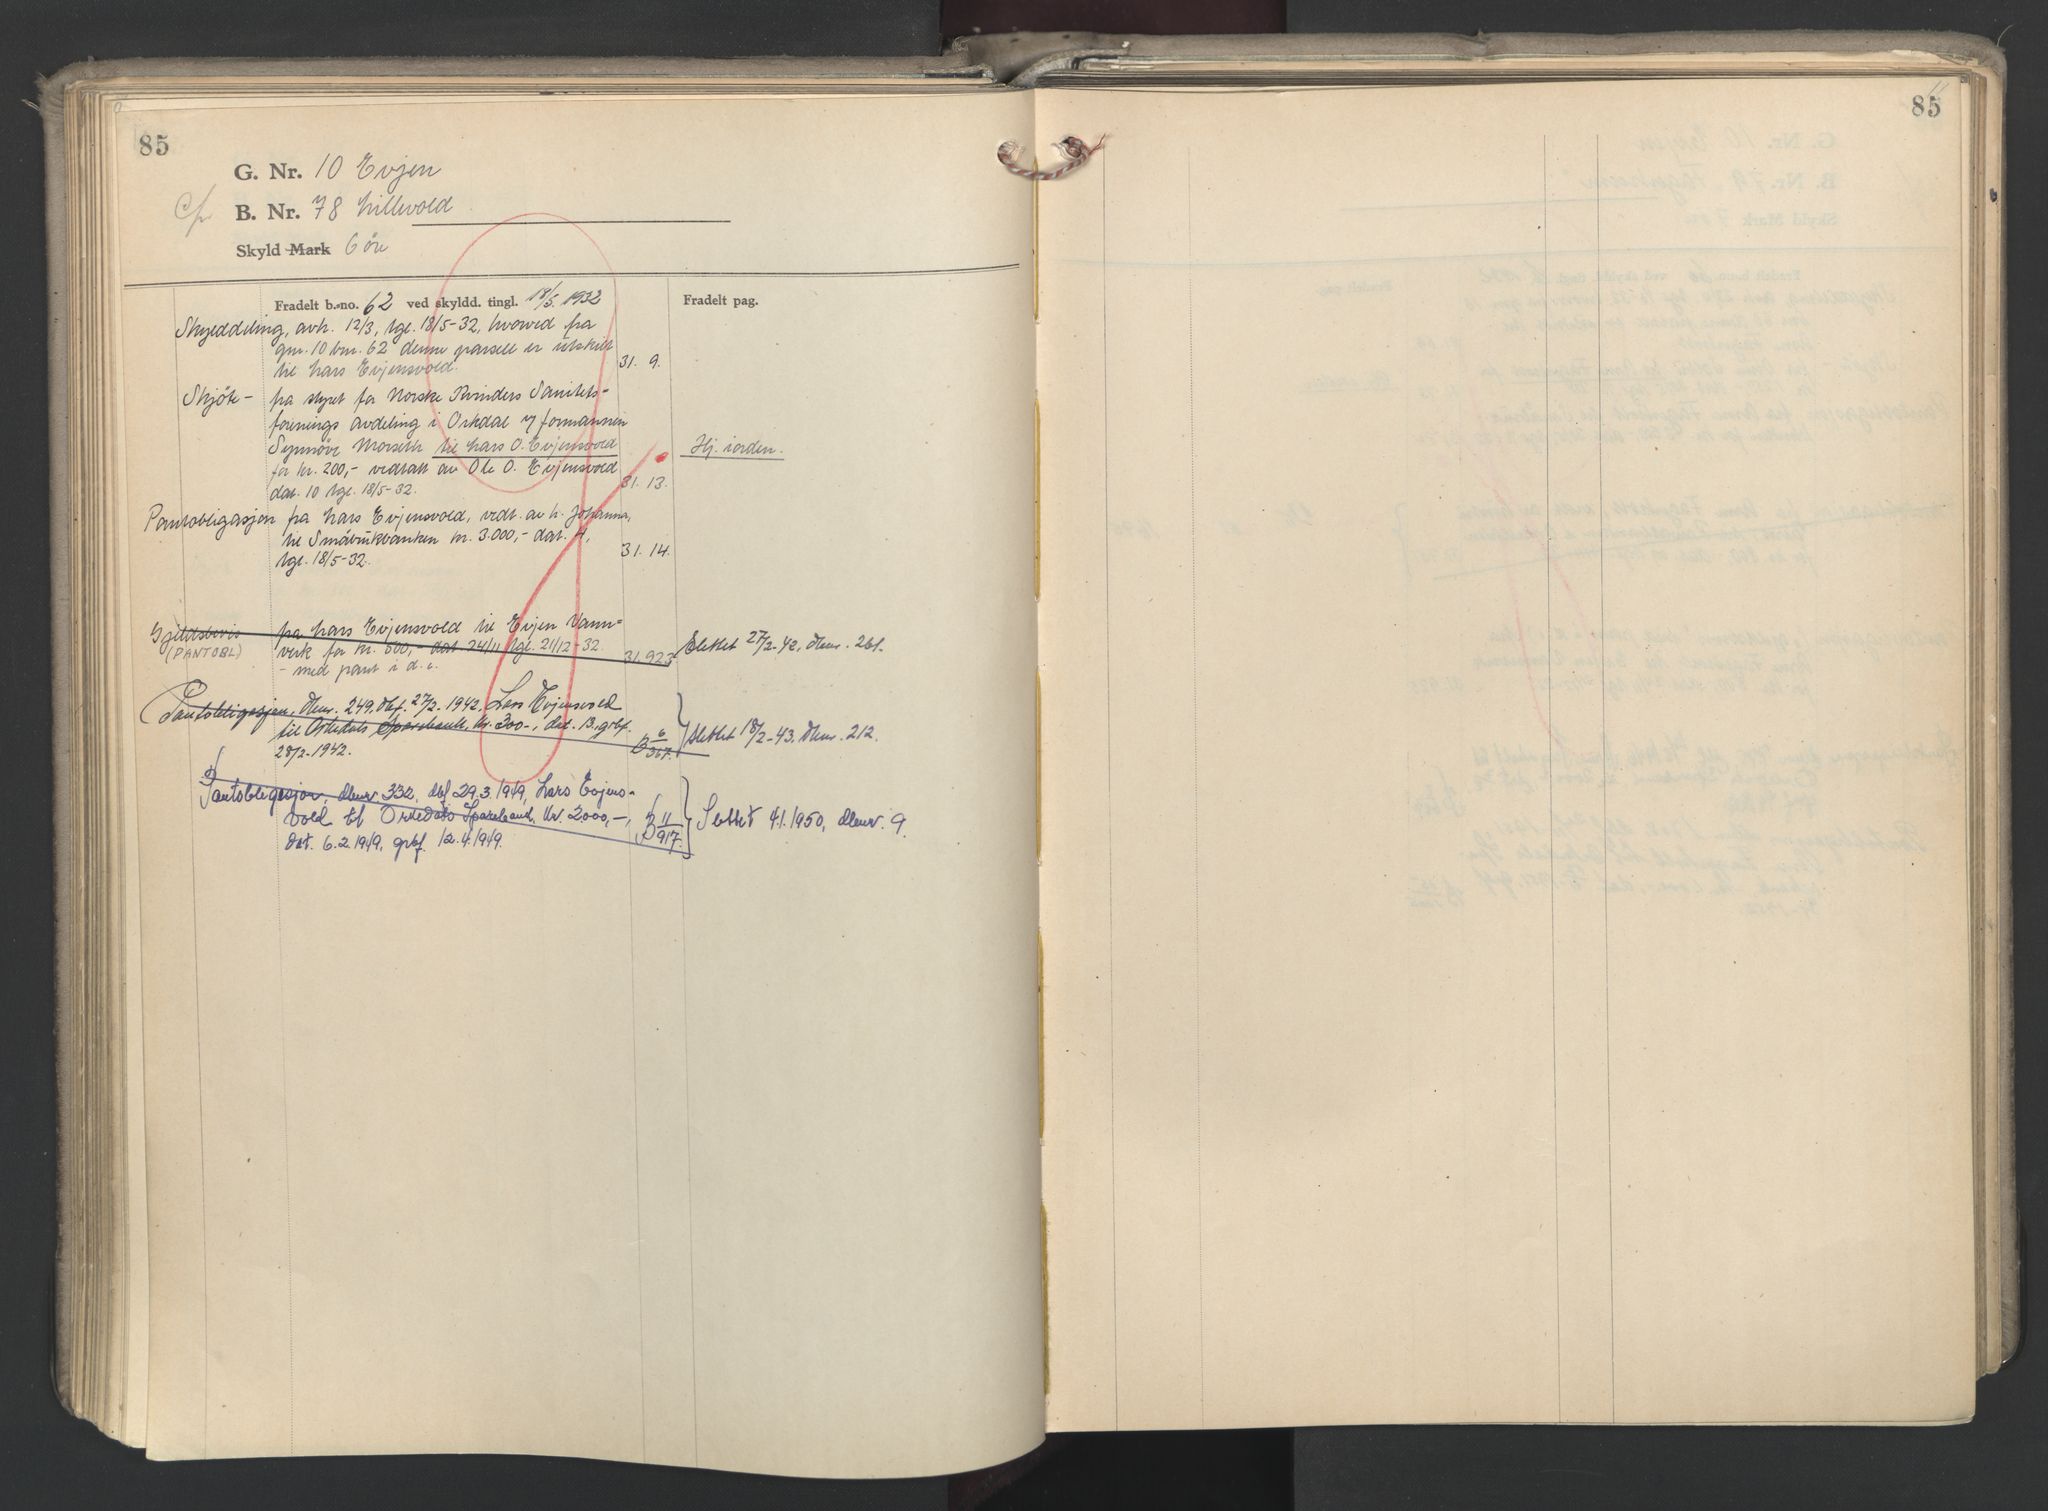 85
G. Nr. 10 Evjen
B. Nr. 78 Lillevold
Skyld Mark 6 öre
Fradelt b.-no. 62 ved skyldd. tingl. 18/5. 1932
Fradelt pag.
Skylddeling, avh. 12/3, tgl. 18/5-32, hvorved fra
gnr. 10 bnr. 62 denne parsell er utskilt
til Lars Evjensvold. 31. 9.
Skjöte - fra styret for Norske Kvinders Sanitets-
forenings avdeling i Orkdal v/ formannen
Synnöve Morseth til Lars O. Evjensvold
for kr. 200,- vedtatt av Ole O. Evjensvold
dat. 10 tgl. 18/5-32. 31. 13.
Hj. i orden.
Pantobligasjon fra Lars Evjensvold, vedt. av h. Johanna,
til Småbrukbanken kr. 3.000,- dat. 4,
tgl. 18/5-32. 31. 14.
Gjeldsbevis fra Lars Evjensvold til Evjen Vann-
(PANTOBL) verk for kr. 500,- dat 24/11 tgl. 21/12-32.
- med pant i d. e. 31.923
Slettet 27/2-42, dbnr. 261.
Pantobligasjon, dbnr. 249, dbf. 27/2-1942, Lars Evjensvold
til Orkedals Sparebank, kr. 300-, dat. 13, grbf.
28/2-1942. B 6/367.
Slettet 18/2-43. dbnr. 212.
Pantobligasjon, dbnr 332, dbf 29.3.1949, Lars Evjens-
vold til Orkedals Sparebank, kr. 2000,-,
dat. 6.2.1949, grbf. 12.4.1949. B 11/917.
Slettet 4.1.1950, dbnr. 9.
85